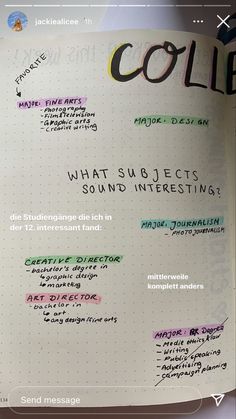 jackiealicee 1h
COLLE
FAVORITE
MAJOR: FINE ARTS
- Photography
- Film & Television
- Graphic arts
- Creative writing
MAJOR: DESIGN
WHAT SUBJECTS
SOUND INTERESTING?
die Studiengänge die ich in
der 12. interessant fand:
MAJOR: JOURNALISM
- PHOTOJOURNALISM
CREATIVE DIRECTOR
- bachelor's degree in
↳ graphic design
↳ marketing
mittlerweile
komplett anders
ART DIRECTOR
- bachelor in
↳ art
↳ any design/fine arts
MAJOR: DEGREE
- Media ethics/law
- Writing
- Public speaking
- Advertising
- Campaign planning
134
Send message